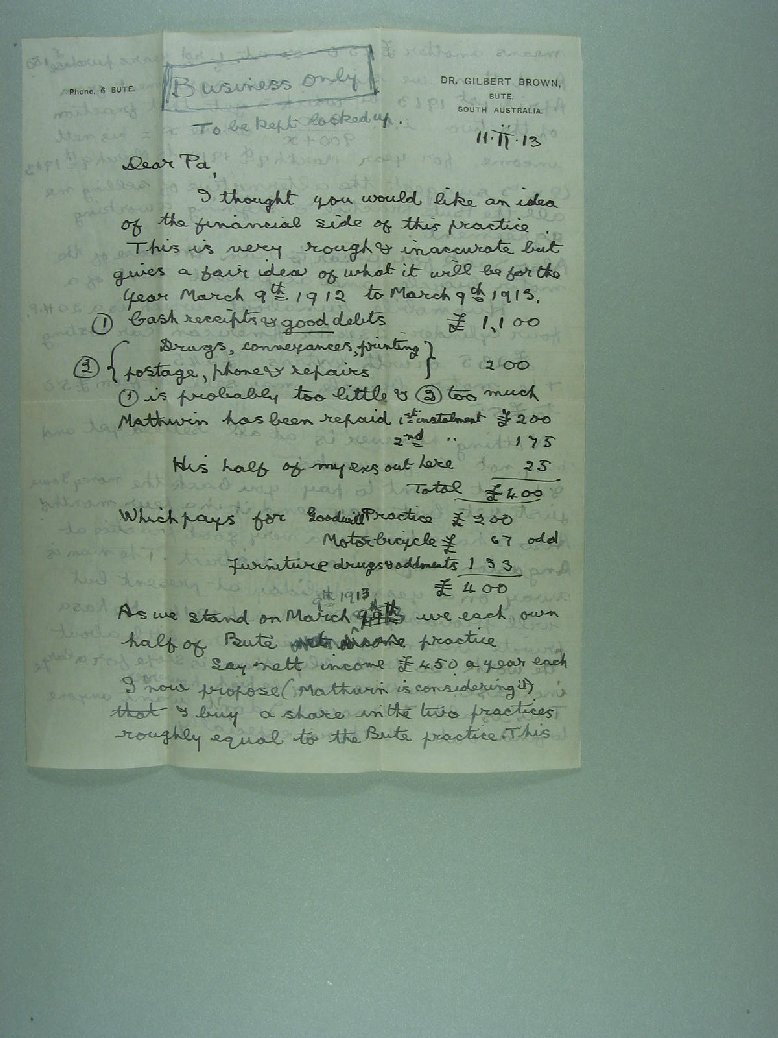 Phone. 6 BUTE.
Business only
DR. GILBERT BROWN,
BUTE.
SOUTH AUSTRALIA.
To be kept locked up.
11.II.13
Dear Pa,
I thought you would like an idea
of the financial side of this practice.
This is very rough & inaccurate but
gives a fair idea of what it will be for the
year March 9th 1912 to March 9th 1913.
(1) Cash receipts & good debts £ 1,100
(2) { Drugs, conveyances, printing
postage, phone & repairs } 200
(1) is probably too little & (2) too much
Mathwin has been repaid 1st instalment £200
2nd " 175
His half of my exs out here 25
Total £400
Which pays for Goodwill Practice £ 200
Motorbicycle £ 67 odd
Furniture drugs & oddments 133
£ 400
9th 1913
As we stand on March we each own
half of Bute practice
Say nett income £450 a year each
I now propose (Mathwin is considering it)
that I buy a share in the two practices
roughly equal to the Bute practice. This